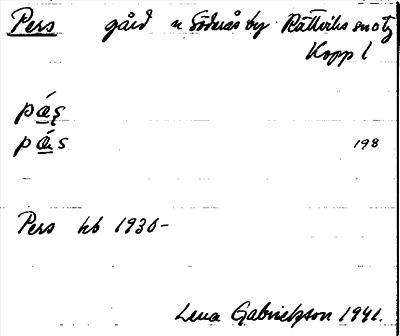 Pers gård u Söderås by Rättviks sn o tg
Kopp l
pá̱s̨
pá̱s 198
Pers kb 1930-
Lena Gabrielsson 1941.